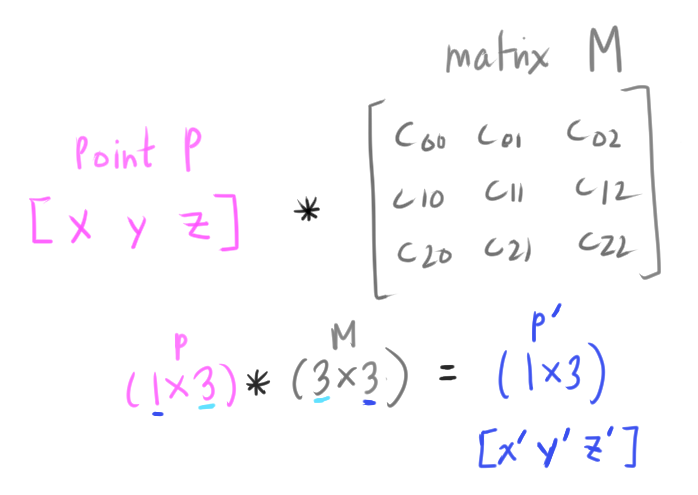 matrix M
Point P
[ x y z ] * [ C00 C01 C02
C10 C11 C12
C20 C21 C22 ]
P M P'
(1×3) * (3×3) = (1×3)
[x' y' z']